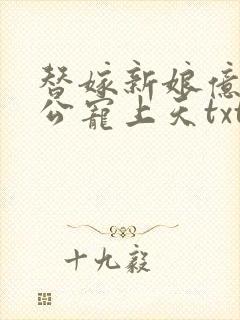 替嫁新娘億
公寵上天txt
十九毅